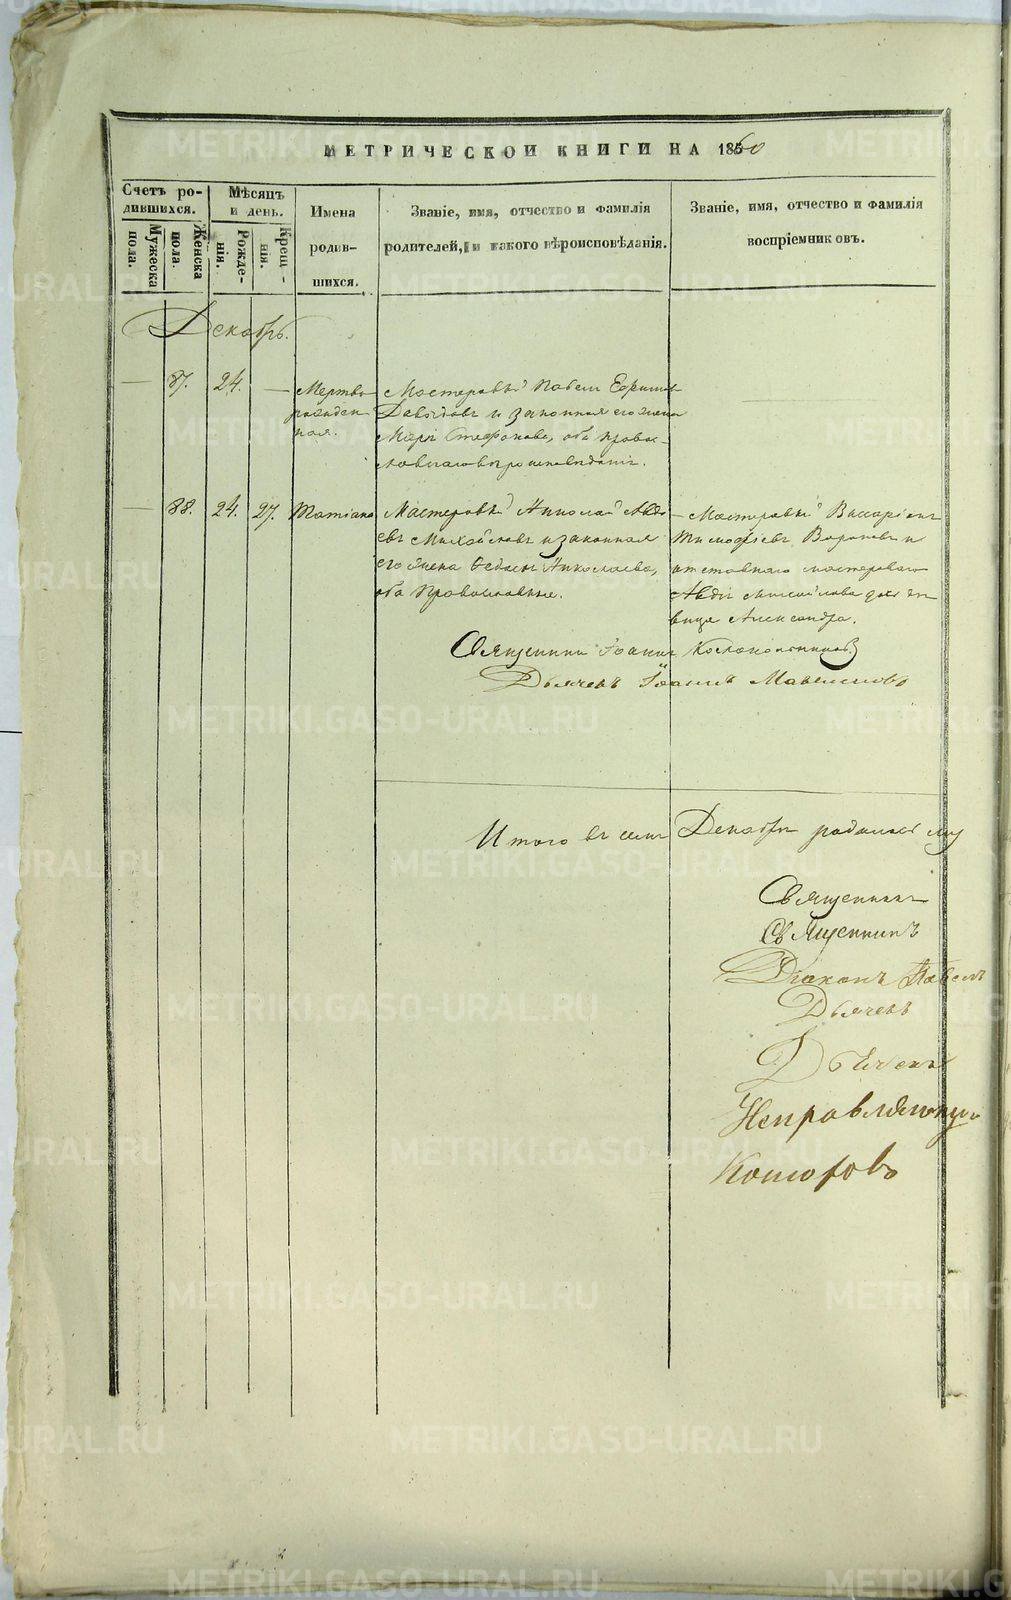 МЕТРИЧЕСКОЙ КНИГИ НА 1860
Счетъ ро-
дившихся.
Мужеска
пола.
Женска
пола.
Мѣсяцъ
и день.
Рожде-
нія.
Крещ-
нія.
Имена
родив-
шихся.
Званіе, имя, отчество и фамилія
родителей, и какого вѣроисповѣданія.
Званіе, имя, отчество и фамилія
воспріемниковъ.
Декабрь.
— 87. 24. —
Мертво
рожден
ная.
Мастеровый Павелъ Ефимов
Давыдовъ и законная его жена
Стефанова, оба право-
— 88. 24. 27.
Татіана
Мастеровый Николай Авдѣ
евъ Михайловъ и законная
его жена Николаева,
оба Православные.
Мастеровый Виссаріонъ
Тимофѣевъ и
отставнаго мастероваго
Авдія Михайлова дочь дѣ
вица Александра.
Священникъ Іоаннъ
Дьячекъ Іоаннъ
Итого въ семъ Декабрѣ родилось му
Священникъ
Священникъ
Діаконъ Павелъ
Дьячекъ
Дьячекъ
METRIKI.GASO-URAL.RU